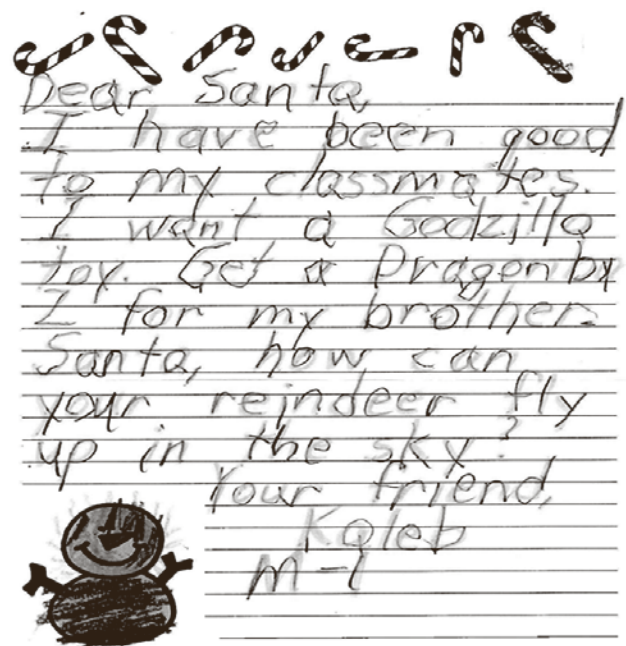 Dear Santa,
I have been good
to my classmates.
I want a Godzilla
toy. Get a Dragon bx
Z for my brother.
Santa, how can
your reindeer fly
up in the sky?
Your friend,
Kaleb
M-1